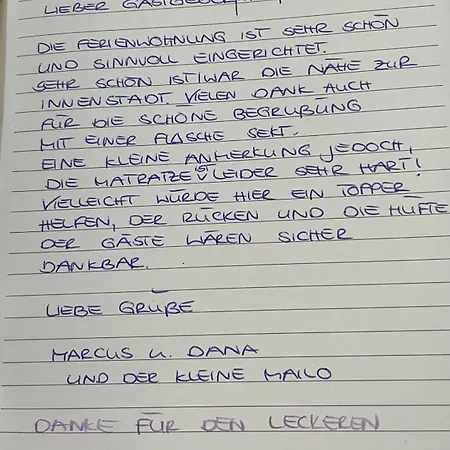 LIEBER GASTGEBER,
DIE FERIENWOHNUNG IST SEHR SCHÖN
UND SINNVOLL EINGERICHTET.
SEHR SCHÖN IST/WAR DIE NÄHE ZUR
INNENSTADT. VIELEN DANK AUCH
FÜR DIE SCHÖNE BEGRÜßUNG
MIT EINER FLASCHE SEKT.
EINE KLEINE ANMERKUNG JEDOCH,
DIE MATRATZE IST LEIDER SEHR HART!
VIELLEICHT WÜRDE HIER EIN TOPPER
HELFEN, DER RÜCKEN UND DIE HÜFTE
DER GÄSTE WÄREN SICHER
DANKBAR.
LIEBE GRÜßE
MARCUS U. DANA
UND DER KLEINE MAILO
DANKE FÜR DEN LECKEREN